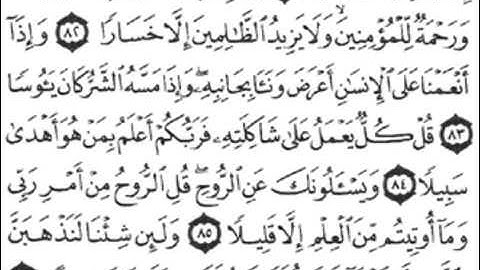 وَرَحْمَةٌ لِّلْمُؤْمِنِينَ ۙ وَلَا يَزِيدُ ٱلظَّٰلِمِينَ إِلَّا خَسَارًا ٨٢ وَإِذَآ
أَنْعَمْنَا عَلَى ٱلْإِنسَٰنِ أَعْرَضَ وَنَـَٔا بِجَانِبِهِۦ ۖ وَإِذَا مَسَّهُ ٱلشَّرُّ كَانَ يَـُٔوسًا
٨٣ قُلْ كُلٌّ يَعْمَلُ عَلَىٰ شَاكِلَتِهِۦ فَرَبُّكُمْ أَعْلَمُ بِمَنْ هُوَ أَهْدَىٰ
سَبِيلًا ٨٤ وَيَسْـَٔلُونَكَ عَنِ ٱلرُّوحِ ۖ قُلِ ٱلرُّوحُ مِنْ أَمْرِ رَبِّى
وَمَآ أُوتِيتُم مِّنَ ٱلْعِلْمِ إِلَّا قَلِيلًا ٨٥ وَلَئِن شِئْنَا لَنَذْهَبَنَّ